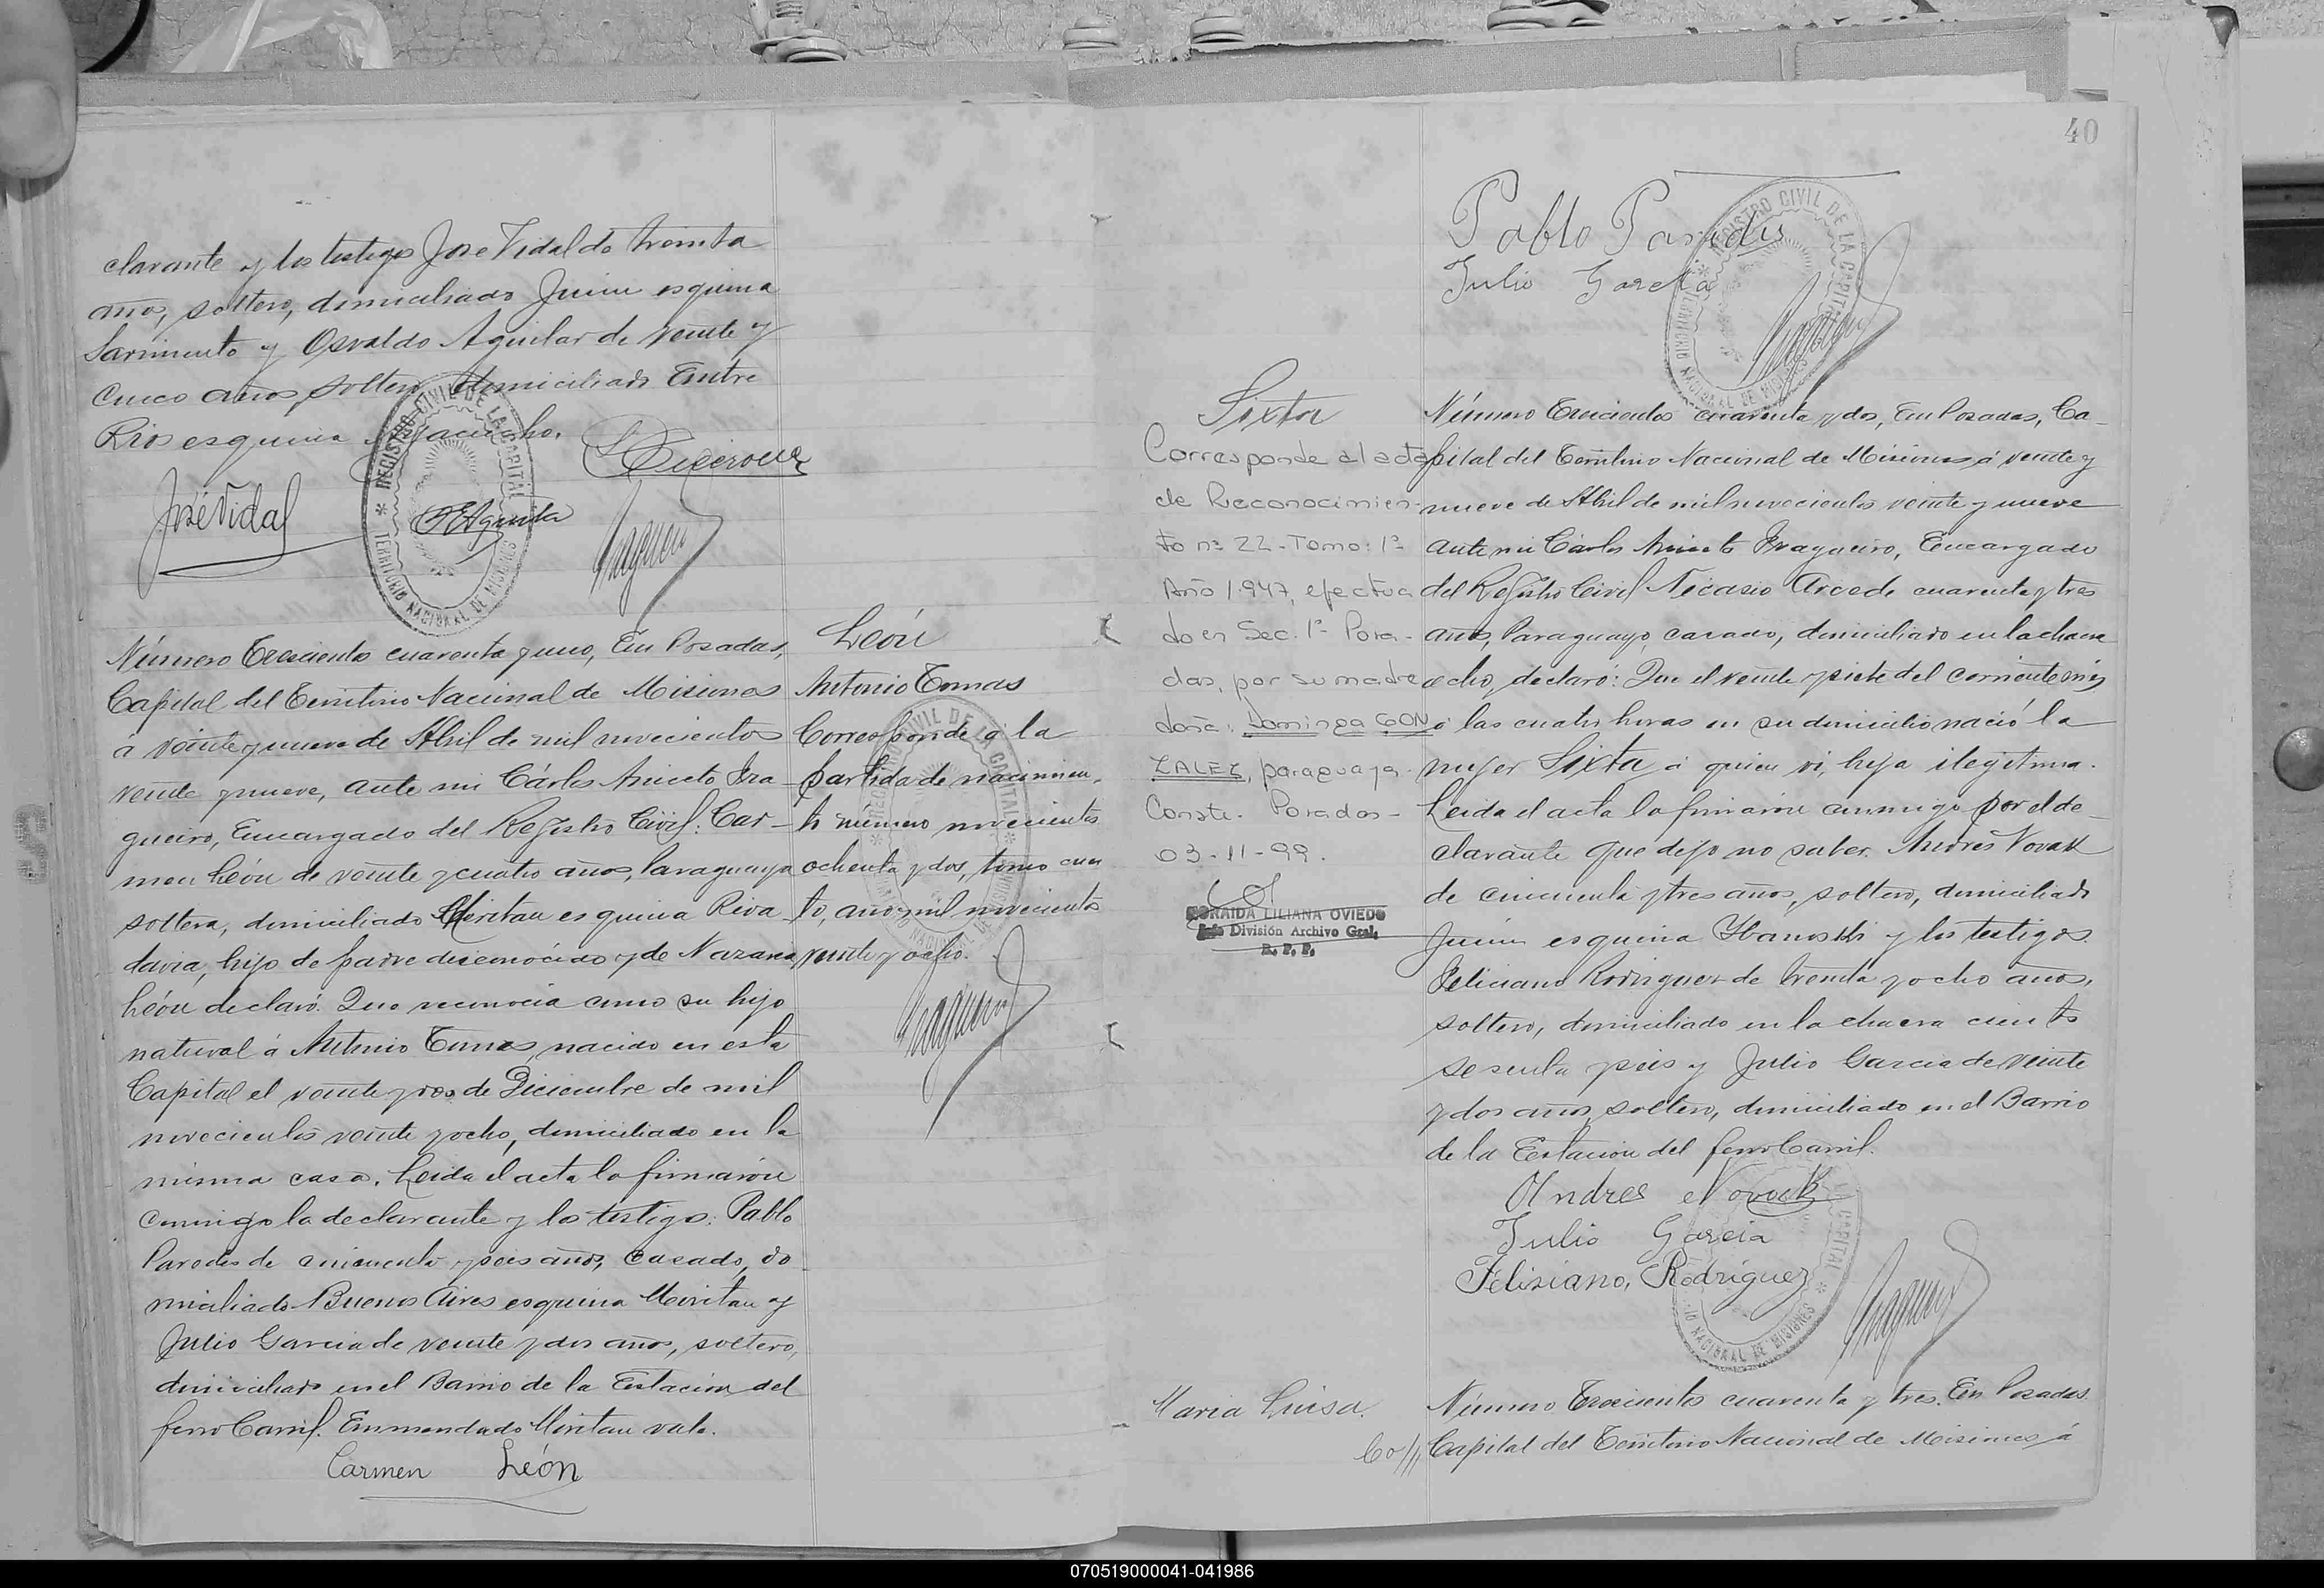 clarante y los testigos José Vidal de treinta
años, soltero, domiciliado Junin esquina
Sarmiento y Osvaldo Aguilar de veinte y
cinco años, soltero domiciliado Entre
Rios esquina Ayacucho.
José Vidal
REGISTRO CIVIL DE LA CAPITAL
TERRITORIO NACIONAL DE MISIONES
Número Trescientos cuarenta y uno, En Posadas,
Capital del Territorio Nacional de Misiones
á veinte y nueve de Abril de mil novecientos
veinte y nueve, ante mi Cárlos Aniceto Fra-
gueiro, Encargado del Registro Civil: Car-
men León de veinte y cuatro años, Paraguaya
soltera, domiciliado Moritan esquina Riva
davia, hijo de padre desconocido y de Nazaria
León declaró: Que reconocia como su hijo
natural á Antonio Tomas, nacido en esta
Capital el veinte y dos de Diciembre de mil
novecientos veinte y ocho, domiciliado en la
misma casa. Leida el acta la firmaron
conmigo la declarante y los testigos: Pablo
Paredes de cincuenta y seis años, casado, do-
miciliado Buenos Aires esquina Moritan y
Julio Garcia de veinte y dos años, soltero,
domiciliado en el Barrio de la Estacion del
ferro Carril. Enmendado Moritan vale.
Carmen León
León
Antonio Tomas
Corresponde á la
partida de nacimien-
to número novecientos
ochenta y dos, tomo cuar
to, año mil novecientos
veinte y ocho.
40
Pablo Paredes
Julio Garcia
REGISTRO CIVIL DE LA CAPITAL
TERRITORIO NACIONAL DE MISIONES
Sixta
Corresponde al acta
de Reconocimien-
to nº 22 - Tomo: 1º
Año 1.947, efectua
do en Sec. 1ª Posa-
das, por su madre
doña: Dominga GON
ZALEZ, paraguaya.
Conste. Posadas -
03-11-99.
ZORAIDA LILIANA OVIEDO
Jefe División Archivo Gral.
R. P. P.
Número Trescientos cuarenta y dos, En Posadas, Ca-
pital del Territorio Nacional de Misiones á veinte y
nueve de Abril de mil novecientos veinte y nueve
ante mi Cárlos Aniceto Fragueiro, Encargado
del Registro Civil Nicasio Arce de cuarenta y tres
años, Paraguayo, casado, domiciliado en la chacra
ocho, declaró: Que el veinte y siete del corriente mes
á las cuatro horas en su domicilio nació la
mujer Sixta á quien vi, hija ilegitima.
Leida el acta la firmaron conmigo por el de-
clarante que dijo no saber. Andrés Novak
de cincuenta y tres años, soltero, domiciliado
Junin esquina y los testigos
Feliciano Rodriguez de treinta y ocho años,
soltero, domiciliado en la chacra ciento
sesenta y seis y Julio Garcia de veinte
y dos años, soltero, domiciliado en el Barrio
de la Estacion del ferro Carril.
Andres Novak
Julio Garcia
Felisiano, Rodriguez
Maria Luisa.
Número Trescientos cuarenta y tres. En Posadas.
Capital del Territorio Nacional de Misiones á
070519000041-041986